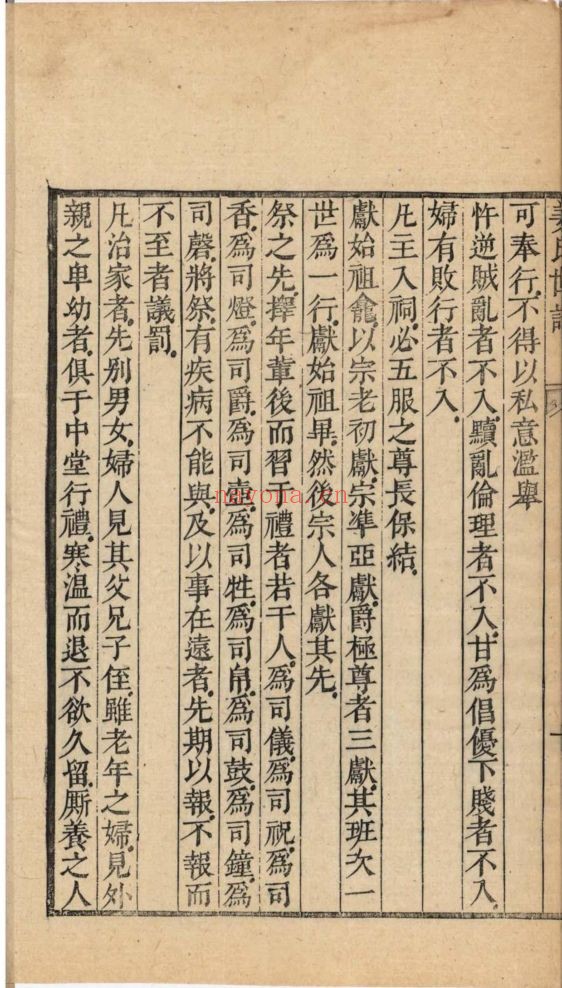 氏世譜
可奉行.不得以私意濫舉
忤逆賊亂者不入.黷亂倫理者不入.甘爲倡優下賤者不入.
婦有敗行者不入.
凡主入祠.必五服之尊長保結.
獻始祖龕.以宗老初獻.宗準亞獻.爵極尊者三獻.其班次一
世爲一行.獻始祖畢.然後宗人各獻其先.
祭之先.擇年輩後而習于禮者若干人.爲司儀.爲司祝.爲司
香.爲司燈.爲司爵.爲司壺.爲司牲.爲司帛.爲司鼓.爲司鐘.爲
司磬.將祭.有疾病不能與.及以事在遠者.先期以報.不報而
不至者議罰.
凡治家者.先別男女.婦人見其父兄子侄.雖老年之婦.見外
親之卑幼者.俱于中堂行禮.寒溫而退.不欲久留.厮養之人
nayona.cn